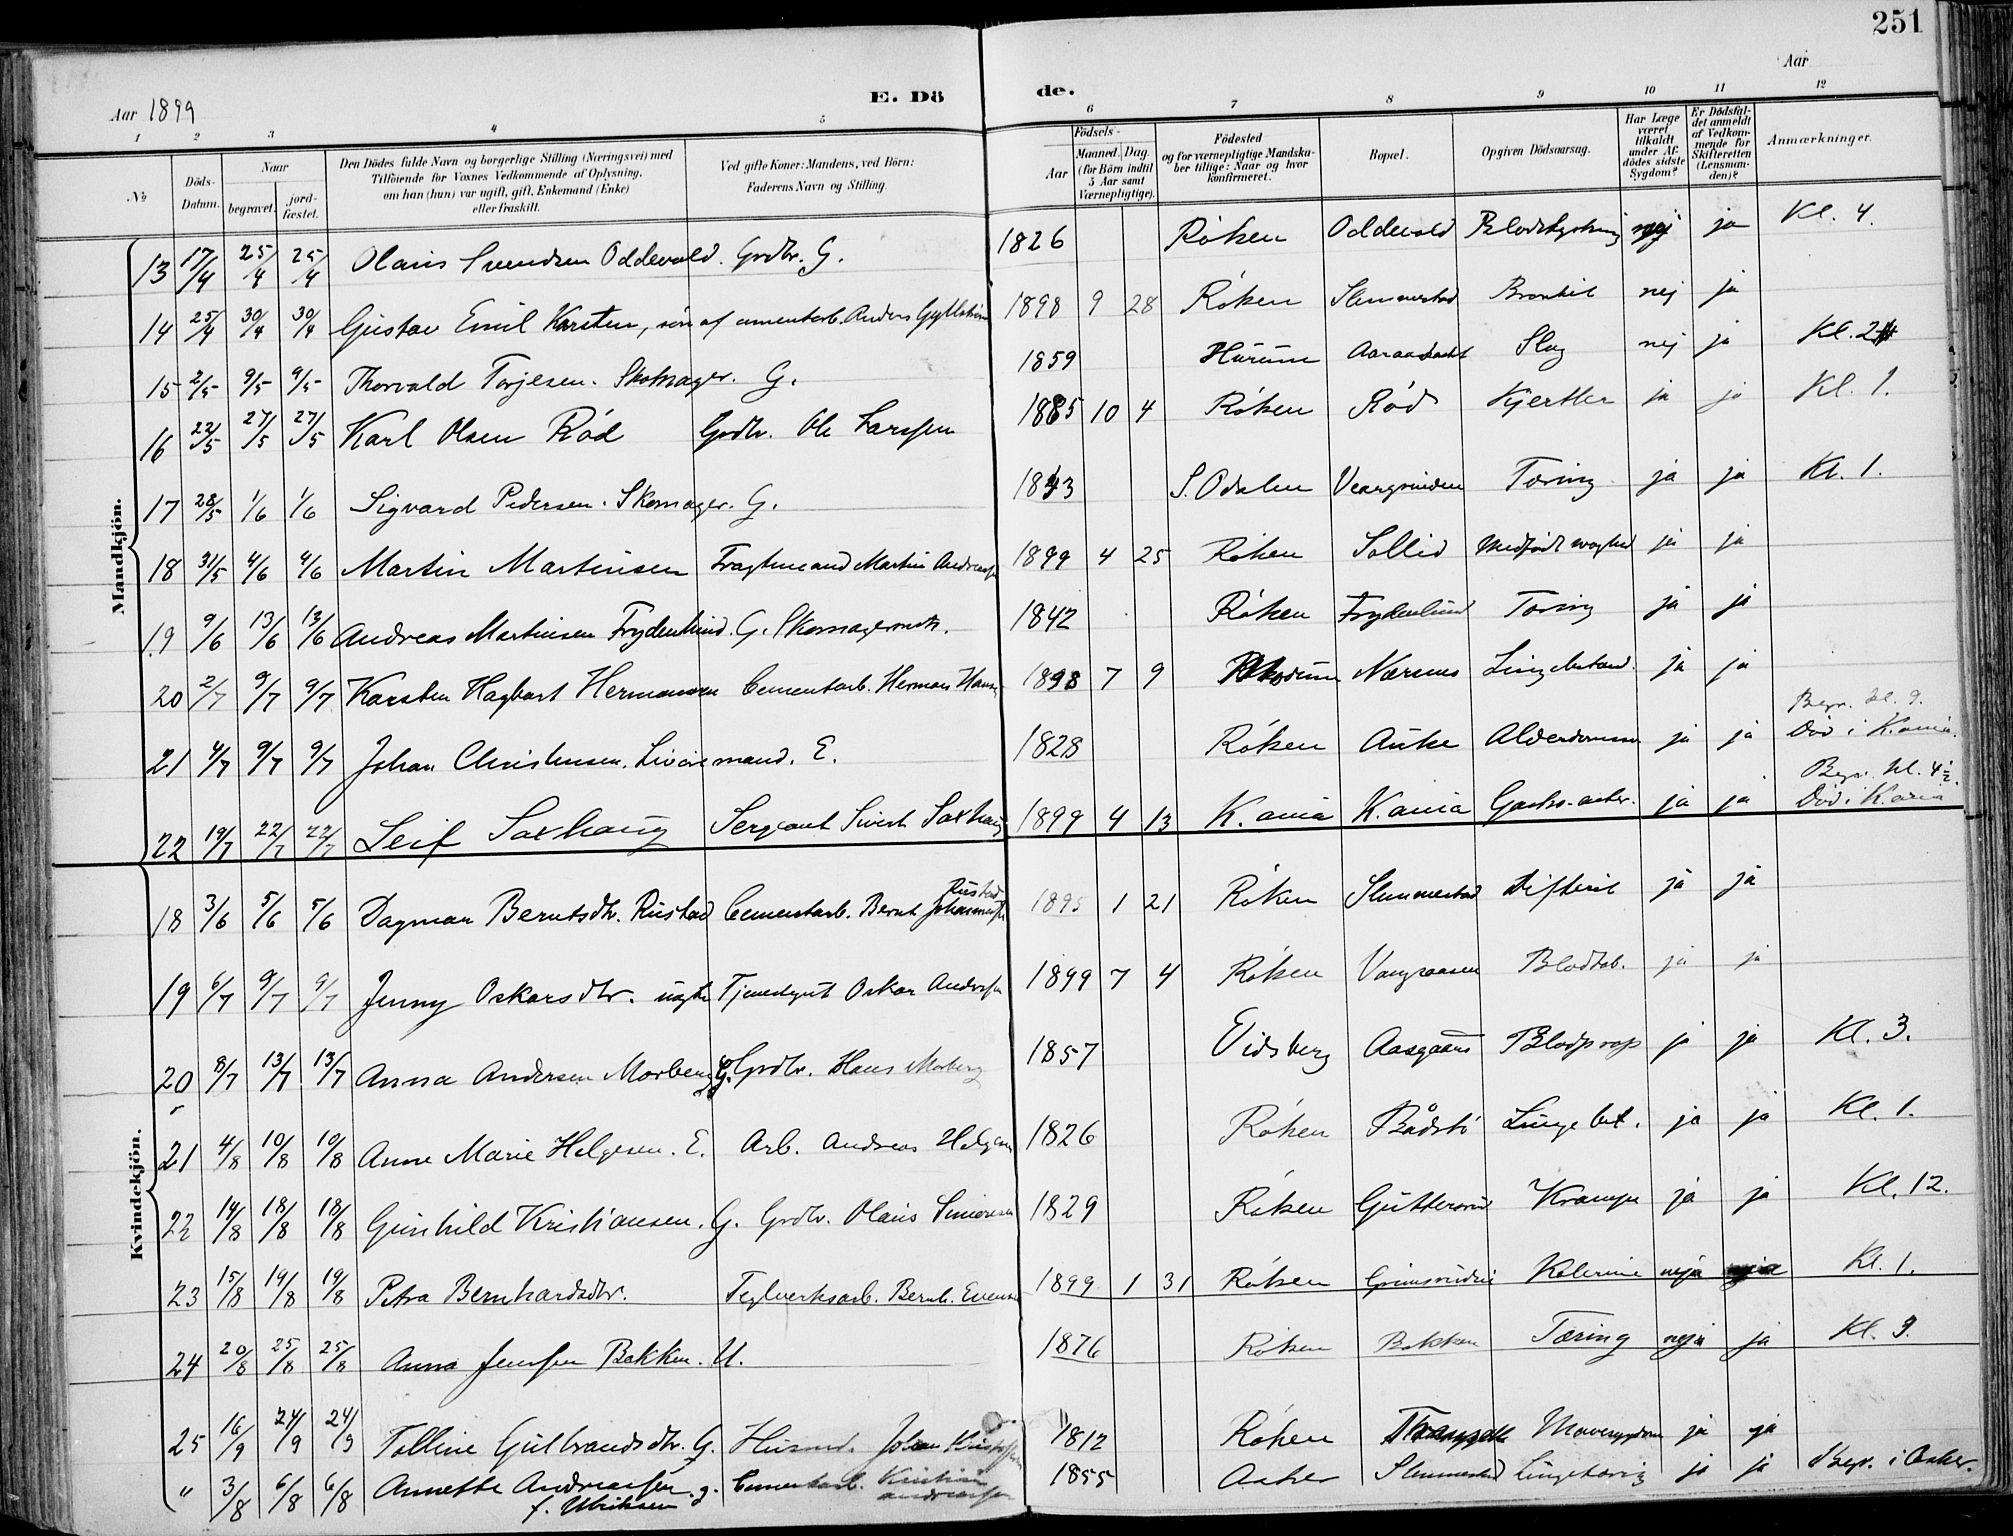 251
Aar 1899
E. Dö
de.
Aar
1 2 3 4 5 6 7 8 9 10 11 12
No
Döds-Datum.
Naar
begravet.
jord-fæstet.
Den Dödes fulde Navn og borgerlige Stilling (Næringsvei) med
Tilföiende for Voxnes Vedkommende af Oplysning,
om han (hun) var ugift, gift, Enkemand (Enke)
eller fraskilt.
Ved gifte Koner: Mandens, ved Börn:
Faderens Navn og Stilling.
Födsels-
Aar
Maaned. Dag.
(for Börn indtil
5 Aar samt
Værnepligtige).
Födested
og for værnepligtige Mandska-
ber tillige: Naar og hvor
konfirmeret.
Bopæl.
Opgiven Dödsaarsag.
Har Læge
været
tilkaldt
under Af-
dødes sidste
Sygdom?
Er Dödsfal-
det anmeldt
af Vedkom-
mende for
Skifteretten
(Lensman-
den)?
Anmærkninger.
Mandkjön.
13 17/4 25/4 25/4 Olaus Svendsen Oddevald. Grdbr. G. 1826 Röken Oddevald nej ja Kl. 4.
14 25/4 30/4 30/4 Gustav Emil Karsten, søn af cementarb. Anders 1898 9 28 Röken Slemmestad Bronkit nej ja
15 2/5 9/5 9/5 Thorvald Torjesen. Skomager. G. 1859 Hurum Slag nej ja Kl. 2
16 22/5 27/5 27/5 Karl Olsen Röd Grdbr. Ole Larssen 1885 10 4 Röken Röd Kjertler ja ja Kl. 1.
17 28/5 1/6 1/6 Sigvard Pedersen. Skomager. G. 1843 S. Odalen Tæring ja ja Kl. 1.
18 31/5 4/6 4/6 Martin Martinsen Fragtmand Martin Andreassen 1899 4 25 Röken Sollid Medfödt svaghed ja ja
19 9/6 13/6 13/6 Andreas Martinsen Frydenlund. G. Skomagermstr. 1842 Röken Frydenlund Tæring ja ja
20 2/7 9/7 9/7 Karsten Hagbart Hermansen Cementarb. Herman Hansen 1898 7 9 Nærsnes Lungebetænd. ja ja
21 4/7 9/7 9/7 Johan Christensen. E. 1828 Röken Auke Alderdomssv. ja ja Begr. kl. 9. Död i K.ania.
22 19/7 22/7 22/7 Leif Saxhaug Sergeant Sivert Saxhaug 1899 4 13 K.ania K.ania Gastro-enter. ja ja Begr. kl. 4½. Död i K.ania
Kvindekjön.
18 3/6 5/6 5/6 Dagmar Berntsdtr. Rustad Cementarb. Bernt Johannessen Rustad 1895 1 21 Röken Slemmestad Difterit ja ja
19 6/7 9/7 9/7 Jenny Oskarsdtr. uægte Tjenestgut Oskar Anderssen 1899 7 4 Röken Vangaasen Blodtab. ja ja
20 8/7 13/7 13/7 Anna Andersen Morberg G. Grdbr. Hans Morberg 1857 Eidsberg Aasgaard Blodprop ja ja Kl. 3.
21 4/8 10/8 10/8 Anne Marie Helgesen. E. Arb. Andreas Helgesen 1826 Röken Bådstö Lungebet. ja ja Kl. 1.
22 14/8 18/8 18/8 Gunhild Kristiansen. G. Grdbr. Olaus Simonsen 1829 Röken Gutterud Krampe ja ja Kl. 12.
23 15/8 19/8 19/8 Petra Bernhardsdtr. Teglverksarb. Bernh. Evensen 1899 1 31 Röken Kolerine ja ja Kl. 1.
24 20/8 25/8 25/8 Anna Jenssen Bakken. U. 1876 Röken Bakken Tæring ja ja Kl. 9.
25 16/9 24/9 24/9 Talline Gulbrandsdtr. G. Husmd. Johan 1812 Röken Mavesygdom ja ja
" 3/8 6/8 6/8 Annette Andreassen g. Cementarb. Kristian Andreassen 1855 Asker Slemmestad Lungetæring ja ja Begr. i Asker.
f. Ulriksen